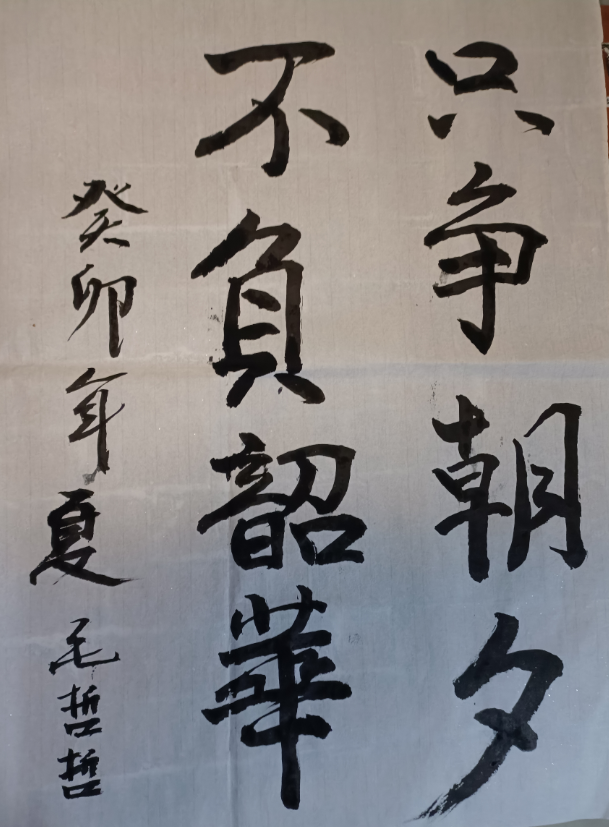 只争朝夕
不負韶華
癸卯年夏 毛哲哲